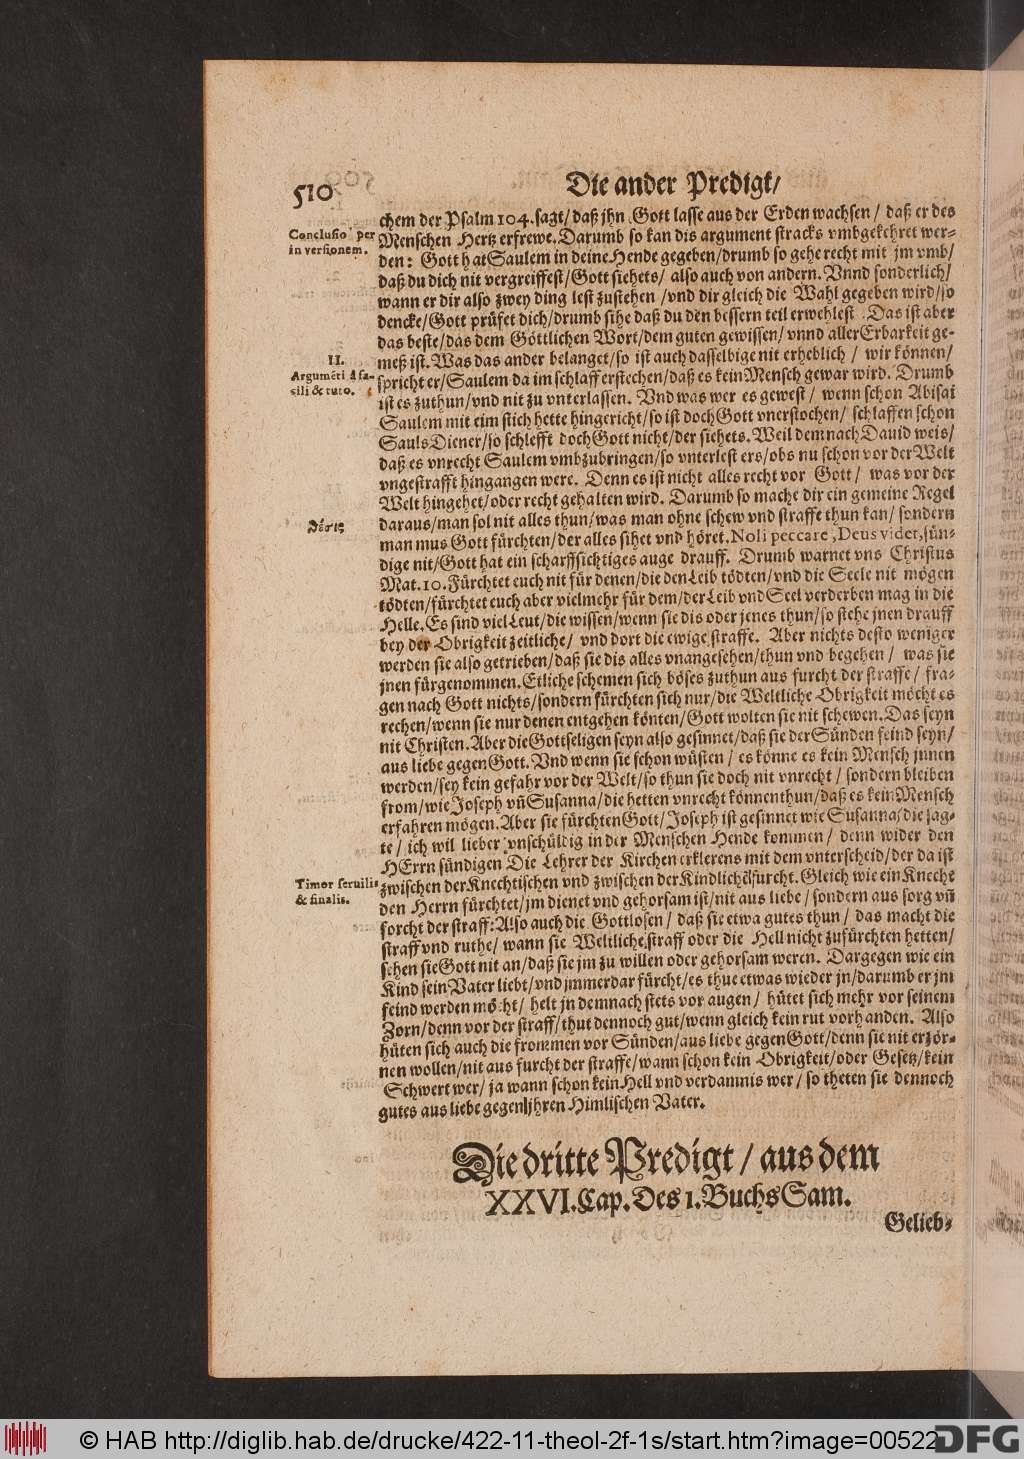 510
Die ander Predigt/
chem der Psalm 104. sagt/ daß jhn Gott lasse aus der Erden wachsen/ daß er des
Conclusio per inversionem.
Menschen Hertz erfrewe. Darumb so kan dis argument stracks vmbgekehret wer-
den: Gott hat Saulem in deine Hende gegeben/drumb so gehe recht mit jm vmb/
daß du dich nit vergreiffest/Gott siehets/ also auch von andern. Vnnd sonderlich/
wann er dir also zwey ding lest zustehen/vnd dir gleich die Wahl gegeben wird/so
dencke/Gott prüfet dich/drumb sihe daß du den bessern teil erwehlest. Das ist aber
das beste/das dem Göttlichen Wort/dem guten gewissen/vnnd aller Erbarkeit ge-
II.
meß ist. Was das ander belanget/so ist auch dasselbige nit erheblich/ wir können/
Argumēti à fa-
spricht er/Saulem da im schlaff erstechen/daß es kein Mensch gewar wird. Drumb
cili & tuto.
ist es zuthun/vnd nit zu vnterlassen. Vnd was wer es gewest/ wenn schon Abisai
Saulem mit eim stich hette hingericht/so ist doch Gott vnerstochen/ schlaffen schon
Sauls Diener/so schlefft doch Gott nicht/der siehets. Weil demnach Dauid weis/
daß es vnrecht Saulem vmbzubringen/so vnterlest ers/obs nu schon vor der Welt
vngestrafft hingangen were. Denn es ist nicht alles recht vor Gott/ was vor der
Welt hingehet/oder recht gehalten wird. Darumb so mache dir ein gemeine Regel
daraus/man sol nit alles thun/was man ohne schew vnd straffe thun kan/ sondern
man mus Gott fürchten/der alles sihet vnd höret. Noli peccare, Deus videt, sün-
dige nit/Gott hat ein scharffsichtiges auge drauff. Drumb warnet vns Christus
Mat. 10. Fürchtet euch nit für denen/die den Leib tödten/vnd die Seele nit mögen
tödten/fürchtet euch aber vielmehr für dem/der Leib vnd Seel verderben mag in die
Helle. Es sind viel Leut/die wissen/wenn sie dis oder jenes thun/so stehe jnen drauff
bey der Obrigkeit zeitliche/ vnd dort die ewige straffe. Aber nichts desto weniger
werden sie also getrieben/daß sie dis alles vnangesehen/thun vnd begehen/ was sie
jnen fürgenommen. Etliche schemen sich böses zuthun aus furcht der straffe/ fra-
gen nach Gott nichts/sondern fürchten sich nur/die Weltliche Obrigkeit möcht es
rechen/wenn sie nur denen entgehen könten/Gott wolten sie nit schewen. Das seyn
nit Christen. Aber die Gottseligen seyn also gesinnet/daß sie der Sünden feind seyn/
aus liebe gegen Gott. Vnd wenn sie schon wüsten/ es könne es kein Mensch jnnen
werden/sey kein gefahr vor der Welt/so thun sie doch nit vnrecht/ sondern bleiben
from/wie Joseph vñ Susanna/die hetten vnrecht können thun/daß es kein Mensch
erfahren mögen. Aber sie fürchten Gott/Joseph ist gesinnet wie Susanna/die sag-
te/ ich wil lieber vnschüldig in der Menschen Hende kommen/ denn wider den
HErrn sündigen. Die Lehrer der Kirchen erklerens mit dem vnterscheid/der da ist
Timor seruilis
zwischen der Knechtischen vnd zwischen der Kindlichē furcht. Gleich wie ein Knecht
& finalis.
den Herrn fürchtet/jm dienet vnd gehorsam ist/nit aus liebe/sondern aus sorg vñ
forcht der straff: Also auch die Gottlosen/ daß sie etwa gutes thun/ das macht die
straff vnd ruthe/ wann sie Weltliche straff oder die Hell nicht zufürchten hetten/
sehen sie Gott nit an/daß sie jm zu willen oder gehorsam weren. Dargegen wie ein
Kind sein Vater liebt/vnd jmmerdar fürcht/es thue etwas wieder jn/darumb er jm
feind werden möcht/ helt jn demnach stets vor augen/ hütet sich mehr vor seinem
Zorn/denn vor der straff/thut dennoch gut/wenn gleich kein rut vorhanden. Also
hüten sich auch die frommen vor Sünden/aus liebe gegen Gott/denn sie nit erzör-
nen wollen/nit aus furcht der straffe/wann schon kein Obrigkeit/oder Gesetz/kein
Schwert wer/ ja wann schon kein Hell vnd verdamnis wer/ so theten sie dennoch
gutes aus liebe gegen jhren Himlischen Vater.
Die dritte Predigt/ aus dem
XXVI. Cap. Des 1. Buchs Sam.
Gelieb-
© HAB http://diglib.hab.de/drucke/422-11-theol-2f-1s/start.htm?image=00522
DFG